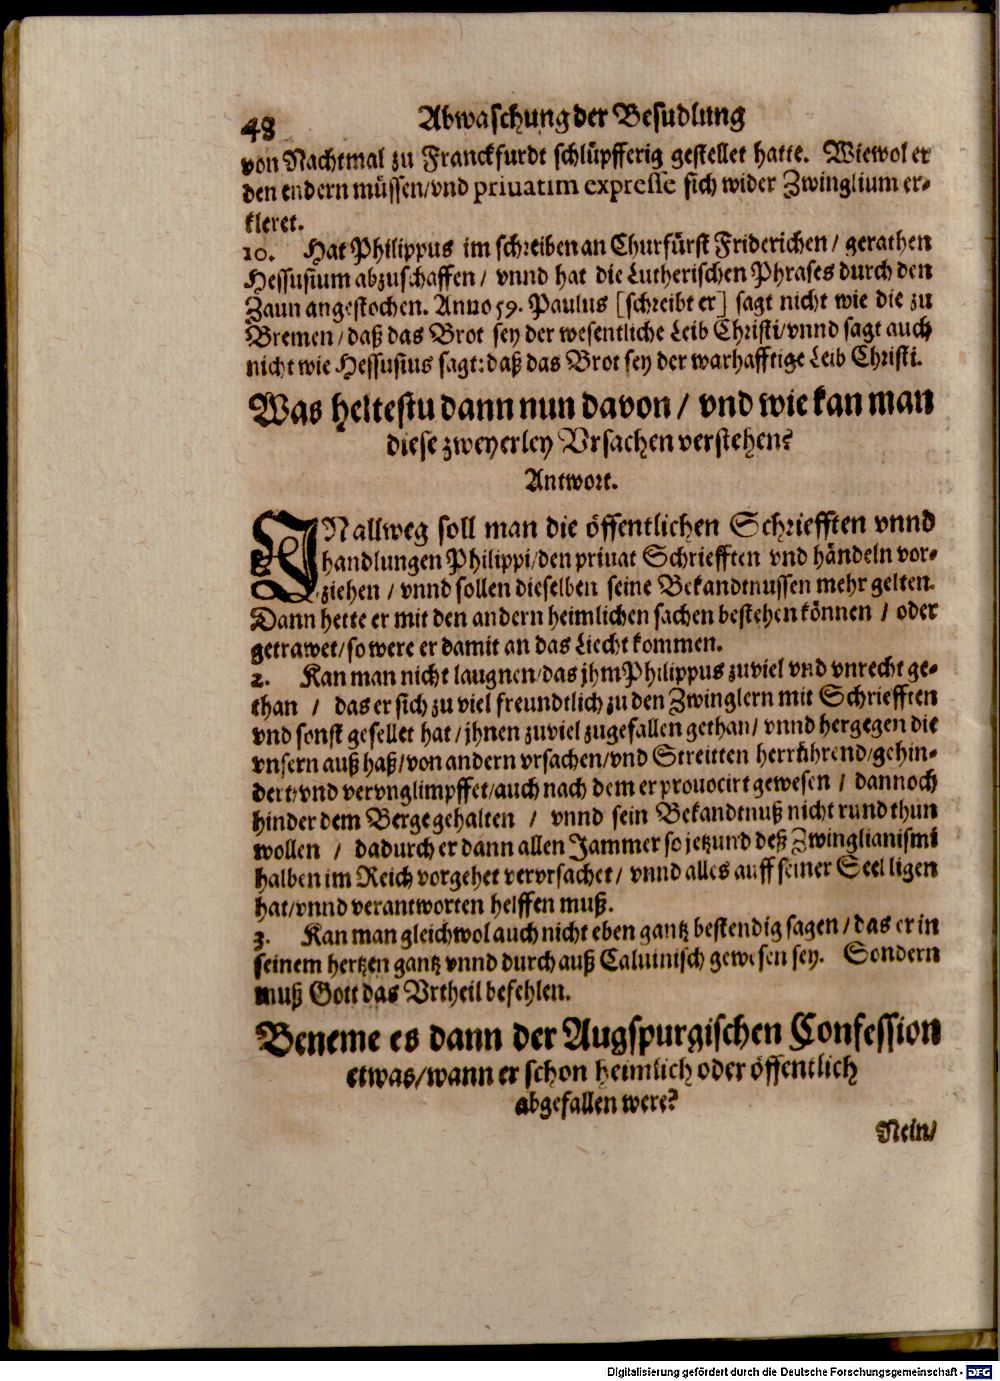 48
Abwaschung der Besudlung
von Nachtmal zu Franckfurdt schlüpfferig gestellet hatte. Wiewol er
den endern müssen/vnd priuatim expresse sich wider Zwinglium er-
kleret.
10. Hat Philippus im schreiben an Churfürst Friderichen/ gerathen
Hessusium abzuschaffen/ vnnd hat die Lutherischen Phrases durch den
Zaun angestochen. Anno 59. Paulus [schreibt er] sagt nicht wie die zu
Bremen/daß das Brot sey der wesentliche Leib Christi/vnnd sagt auch
nicht wie Hessusius sagt: daß das Brot sey der warhafftige Leib Christi.
Was heltestu dann nun davon/ vnd wie kan man
diese zweyerley Vrsachen verstehen?
Antwort.
JN allweg soll man die öffentlichen Schriefften vnnd
handlungen Philippi/den priuat Schriefften vnd händeln vor-
ziehen/ vnnd sollen dieselben seine Bekandtnussen mehr gelten.
Dann hette er mit den andern heimlichen sachen bestehen können/ oder
getrawet/so were er damit an das Liecht kommen.
2. Kan man nicht laugnen/das jhm Philippus zuviel vnd vnrecht ge-
than/ das er sich zu viel freundtlich zu den Zwinglern mit Schriefften
vnd sonst gesellet hat/jhnen zuviel zugefallen gethan/vnnd hergegen die
vnsern auß haß/von andern vrsachen/vnd Streitten herrührend/gehin-
dert/vnd vervnglimpffet/auch nach dem er prouocirt gewesen/ dannoch
hinder dem Berge gehalten/ vnnd sein Bekandtnuß nicht rund thun
wollen/ dadurch er dann allen Jammer so jetzund deß Zwinglianismi
halben im Reich vorgehet vervrsachet/ vnnd alles auff seiner Seel ligen
hat/vnnd verantworten helffen muß.
3. Kan man gleichwol auch nicht eben gantz bestendig sagen/das er in
seinem hertzen gantz vnnd durch auß Caluinisch gewesen sey. Sondern
muß Gott das Vrtheil befehlen.
Beneme es dann der Augspurgischen Confession
etwas/wann er schon heimlich oder öffentlich
abgefallen were?
Nein/
Digitalisierung gefördert durch die Deutsche Forschungsgemeinschaft - DFG